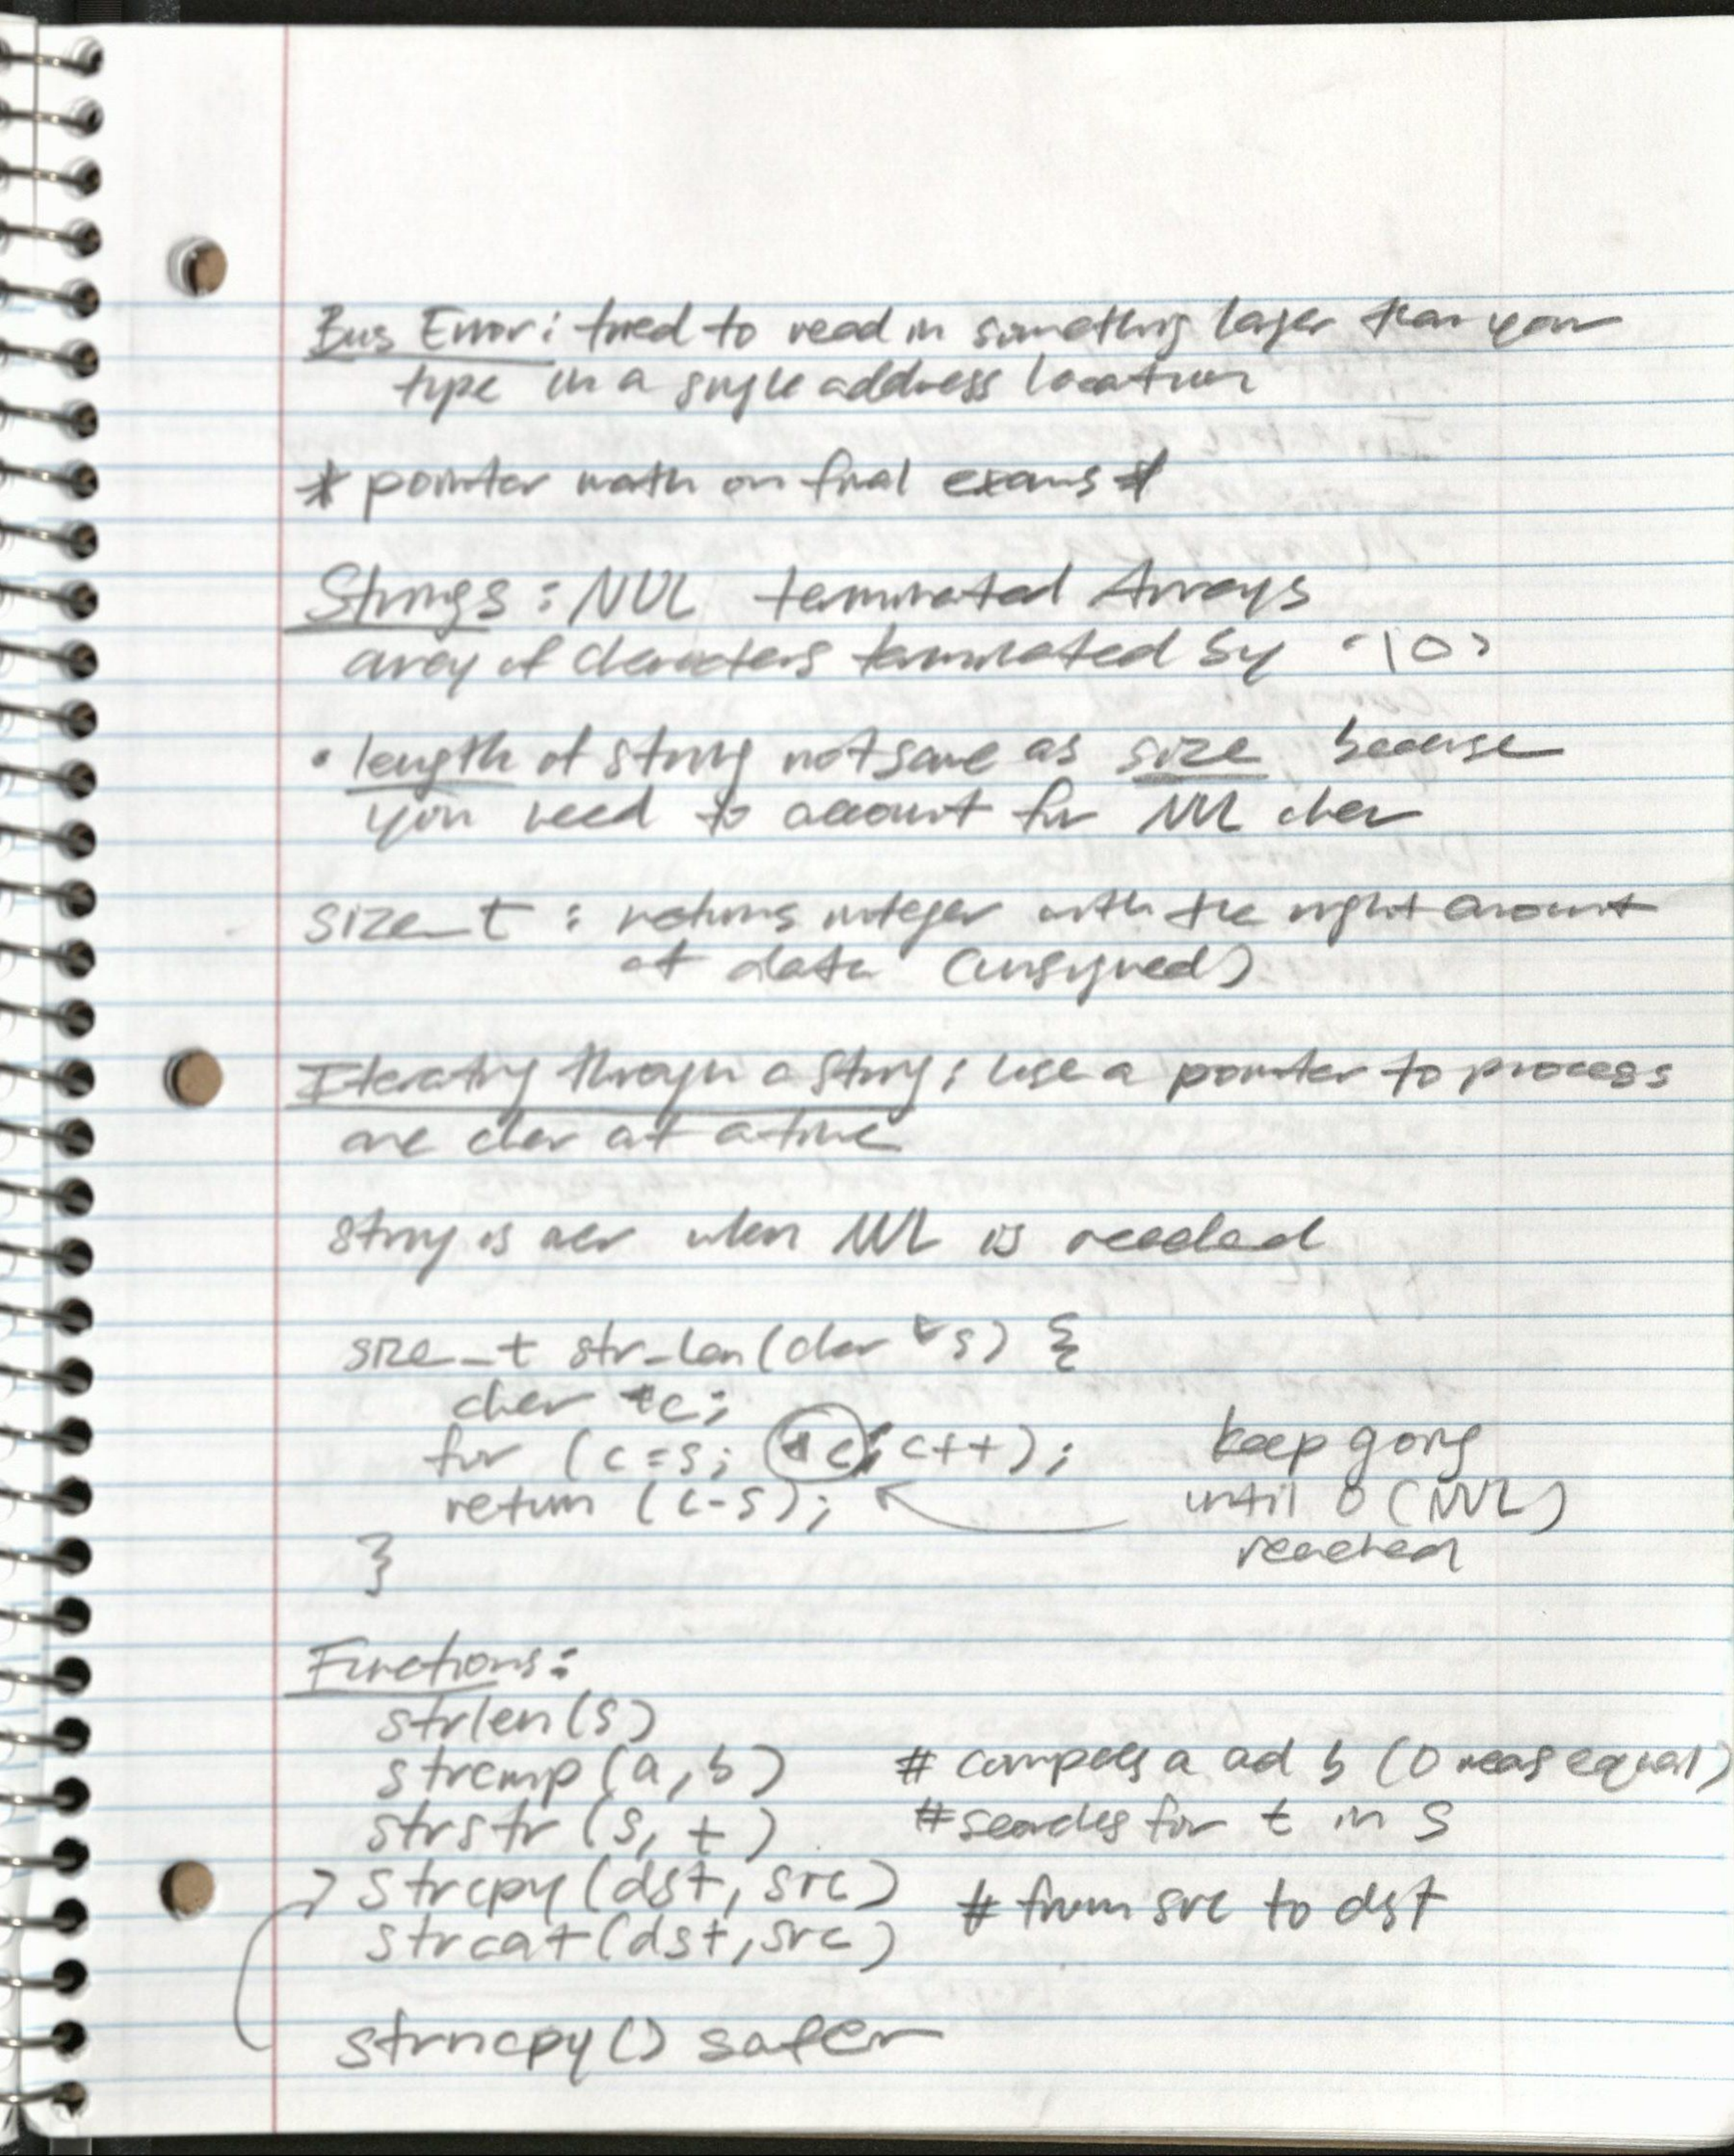 Bus Error: tried to read in something larger than your
type in a single address location
* pointer math on final exams *
Strings: NUL terminated Arrays
array of characters terminated by '\0'
• length of string not same as size because
you need to account for NUL char
size_t : returns integer with the right amount
of data (unsigned)
Iterating through a string: use a pointer to process
one char at a time
string is over when NUL is reached
size_t str_len(char *s) {
char *c;
for (c=s; *c; c++);
keep going
return (c-s);
until 0 (NUL)
reached
}
Functions:
strlen(s)
strcmp(a,b) # compares a and b (0 means equal)
strstr(s, t) # searches for t in s
strcpy(dst, src) # from src to dst
strcat(dst, src)
strncpy() safer